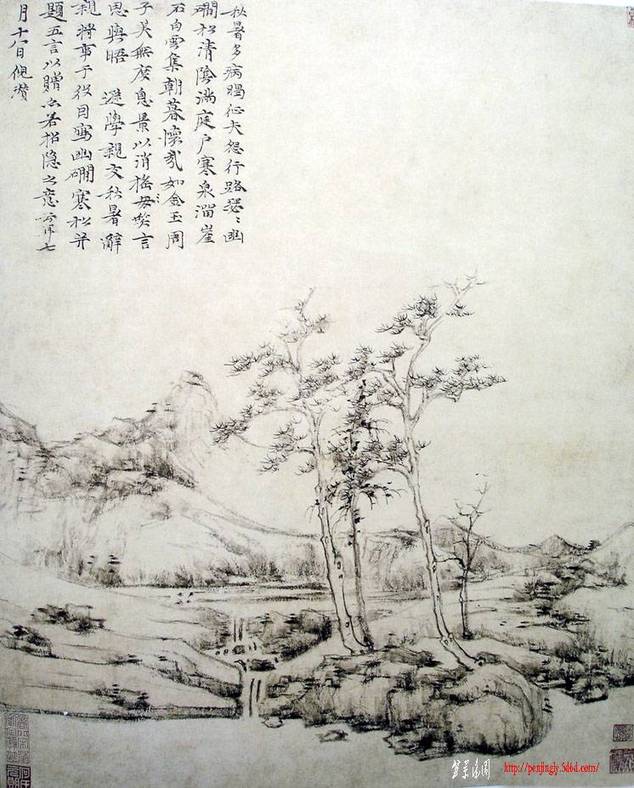 秋暑多病暍征夫怨行路瑟〻幽
磵松清陰滿庭戶寒泉溜崖
石白雲集朝暮懷哉如金玉周
子美無度息景以消搖笑言
思與晤 遜學親友秋暑辭
親將事于役因寫幽磵寒松并
題五言以贈亦若招隱之意云耳七
月十八日倪瓚
http://penjingly.5d6d.com/